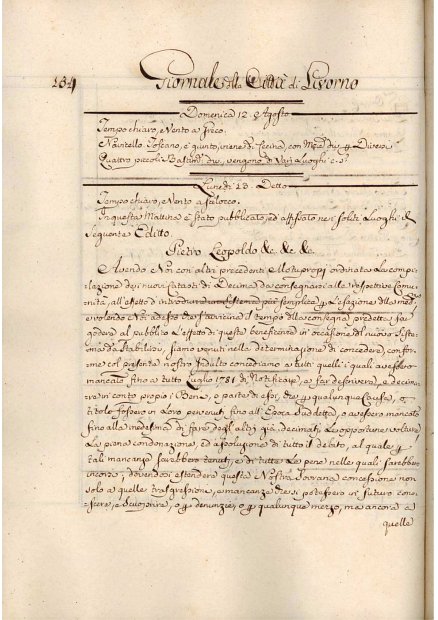 134 Giornale della Città di Livorno
Domenica 12. Agosto
Tempo chiaro, e Vento a Greco.
Navicello Toscano, e giunto, viene di Cecina, con
Quattro piccoli Bastim.ti vengono da Varj Luoghi
Lunedì 13. Detto
Tempo chiaro, e Vento a
In questa Mattina è stato pubblicato, ed affissato nei soliti Luoghi il
Seguente Editto.
Pietro Leopoldo &c. &c. &c.
Avendo Noi con altri precedenti ordinata la compi-
lazione dei nuovi Catasti di Decima da consegnarsi alle respettive Comu-
nità, all'effetto d'introdurre un sistema più semplice l'esazione della
e volendo Noi adesso che si avvicina il tempo della consegna predetta far
godere al pubblico l'effetto di questa beneficenza in occasione del nuovo Siste-
ma da Stabilirsi, siamo venuti nella determinazione di concedere, confor-
me col presente nostro Indulto concediamo a tutti quelli i quali avessero
mancato fino a tutto Luglio 1781 di Notificare, e far descrivere, e decima-
re in conto proprio i Beni, o parte di essi, che qualunque Causa, o
titolo fossero in Loro pervenuti fino all'Epoca Suddetta, o avessero mancato
fino alla medesima di fare degli altri già decimati le opportune Volture
La piena condonazione, ed assoluzione di tutto il debito, al quale
tali mancanze sarebbero tenuti, e di tutte Le pene nelle quali sarebbero
incorsi; dovendosi estendere questa Nostra Sovrana concessione non
solo a quelle trasgressioni, e mancanze che si potessero in futuro cono-
scere, e Scuoprire, o denunzie, o qualunque mezzo, ma ancora a
quelle